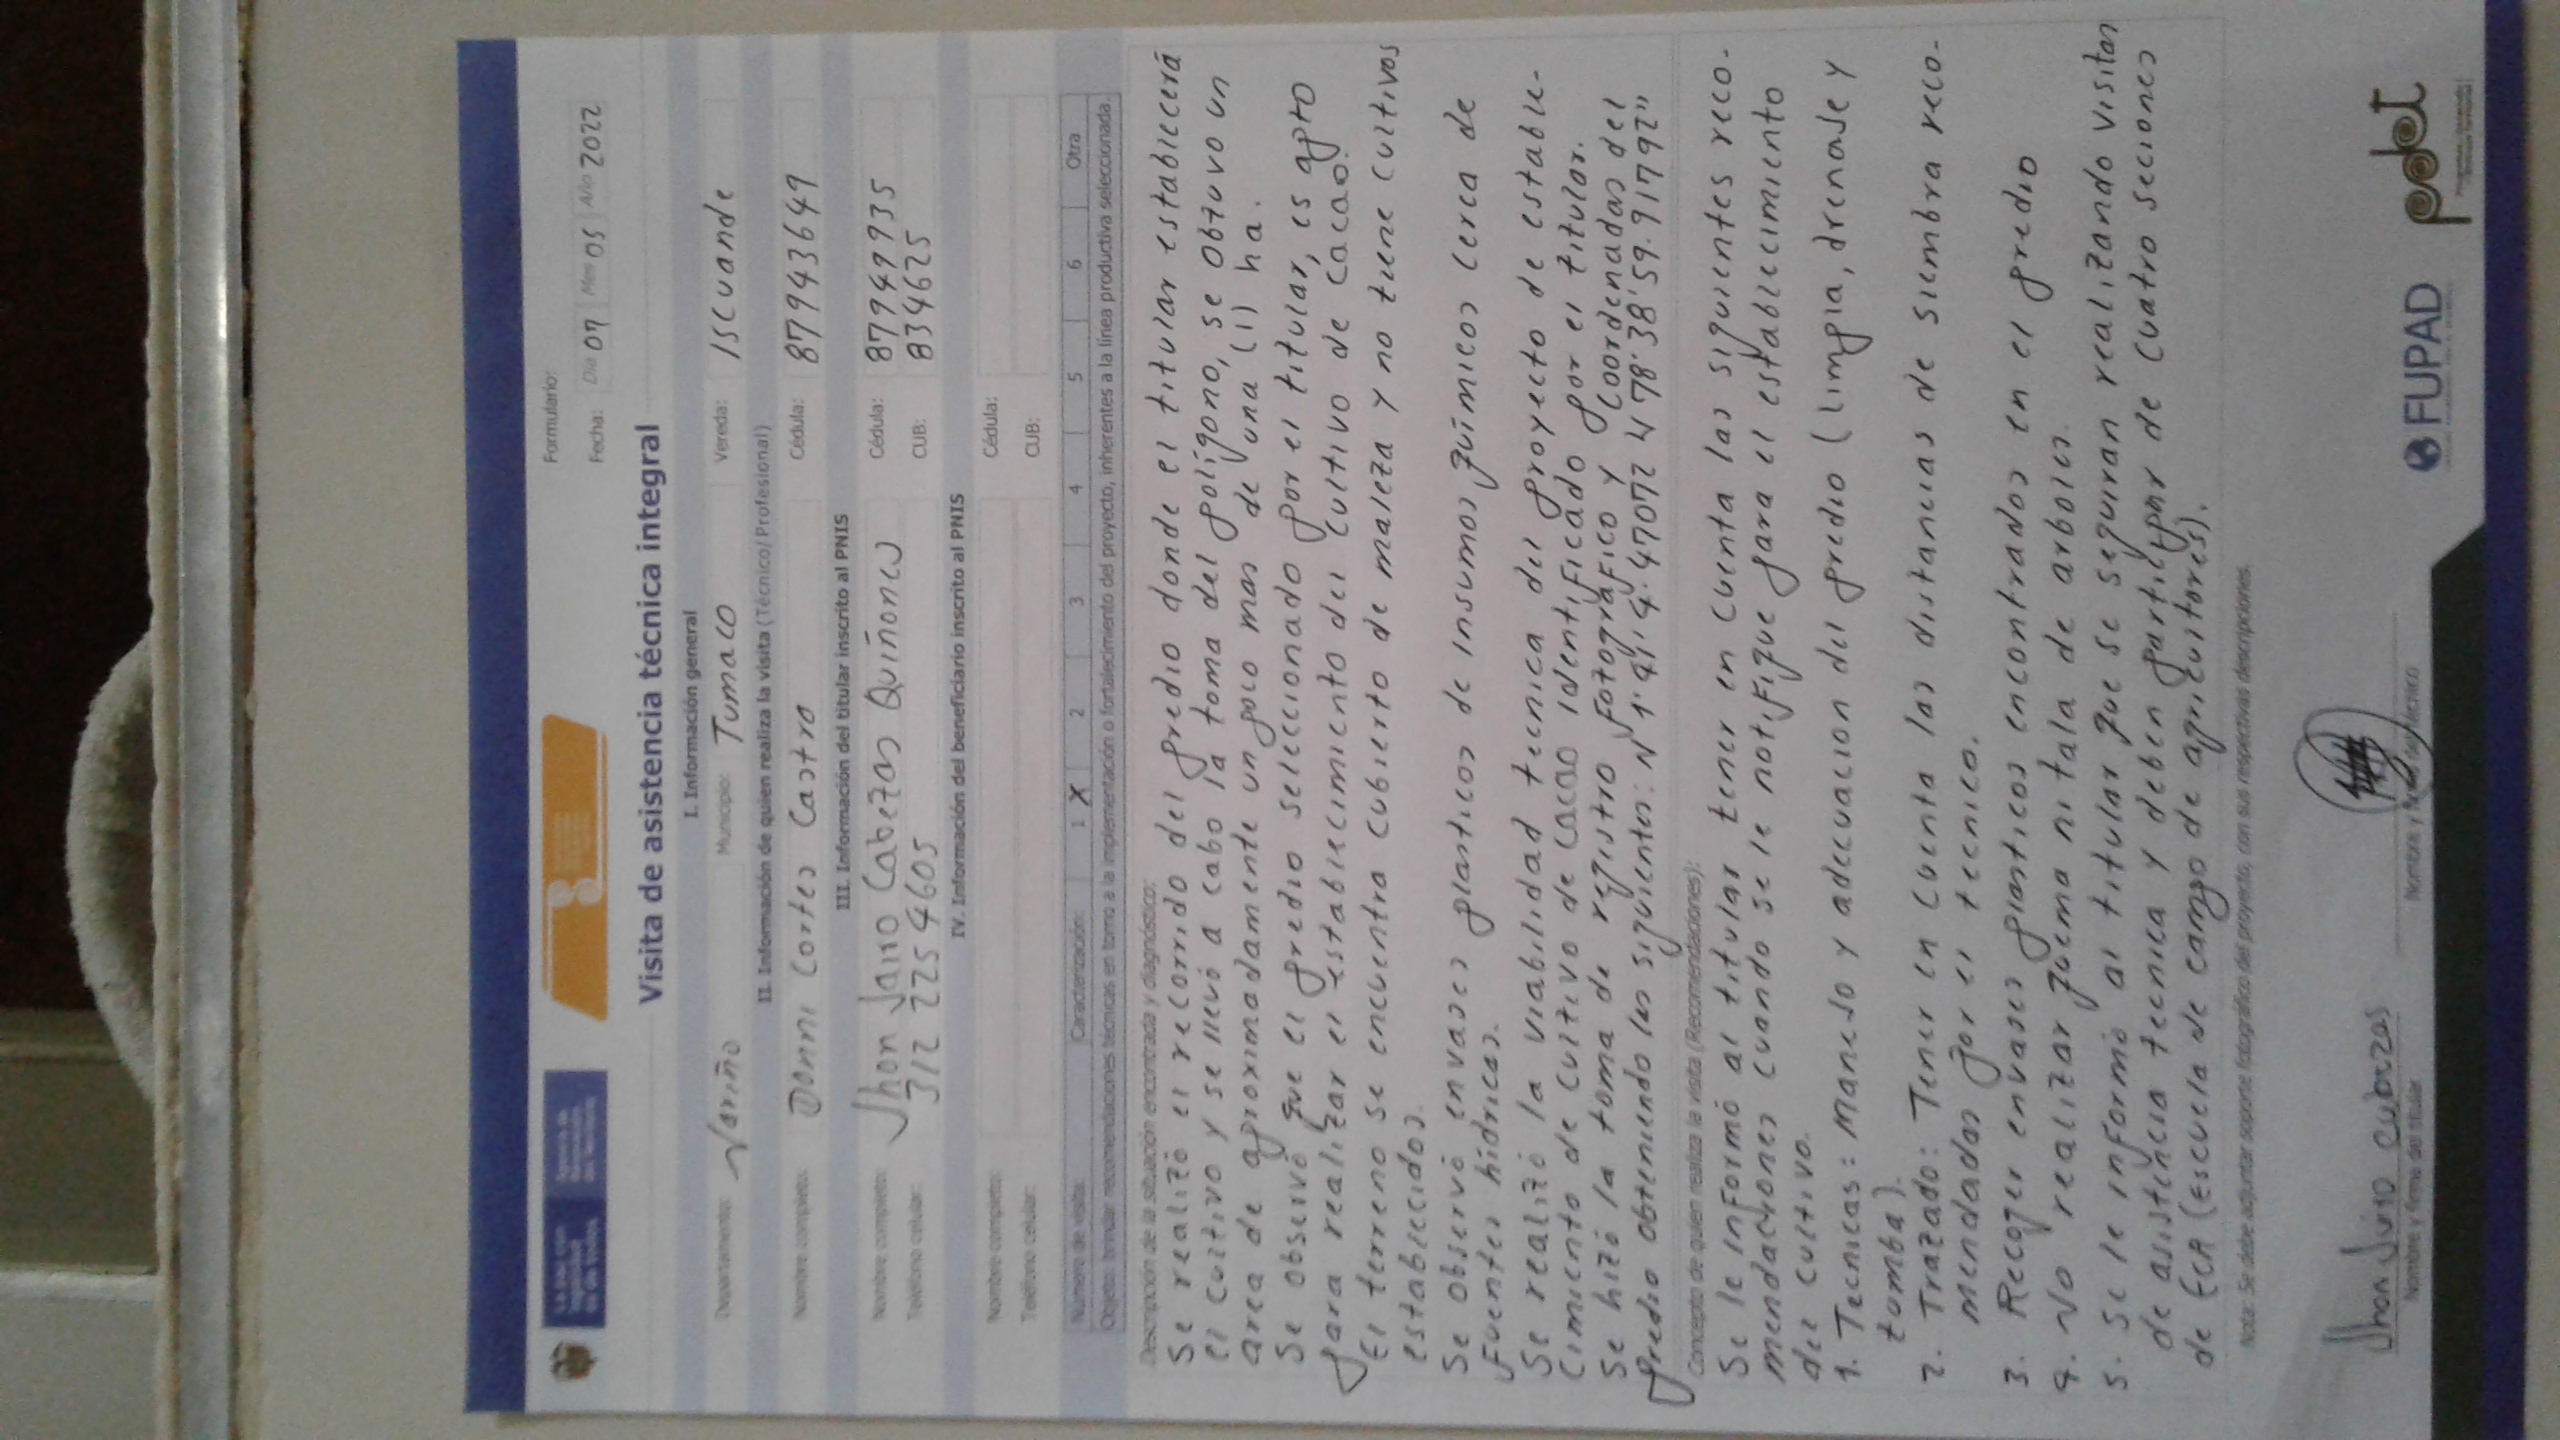 Formulario:
Fecha: Día 07 Mes 05 Año 2022
Visita de asistencia técnica integral
I. Información general
Departamento: Nariño Municipio: Tumaco Vereda: Iscuande
II. Información de quien realiza la visita (Técnico/ Profesional)
Nombre completo: Donni Cortes Castro Cédula: 87943649
III. Información del titular inscrito al PNIS
Nombre completo: Jhon Jairo Cabezas Quiñones Cédula: 87949935
Teléfono celular: 312 225 4605 CUB: 834625
IV. Información del beneficiario inscrito al PNIS
Nombre completo: Cédula:
Teléfono celular: CUB:
Número de visita: Caracterización: 1 X 2 3 4 5 6 Otra
Objeto: brindar recomendaciones técnicas en torno a la implementación o fortalecimiento del proyecto, inherentes a la línea productiva seleccionada.
Descripción de la situación encontrada y diagnóstico:
Se realizó el recorrido del predio donde el titular establecerá
el cultivo y se llevó a cabo la toma del polígono, se obtuvo un
area de aproximadamente un poco mas de una (1) ha.
Se observó que el predio seleccionado por el titular, es apto
para realizar el establecimiento del cultivo de cacao.
El terreno se encuentra cubierto de maleza y no tiene cultivos
establecidos.
Se observó envases plasticos de insumos químicos cerca de
fuentes hídricas.
Se realizó la viabilidad tecnica del proyecto de estable-
cimiento de cultivo de cacao identificado por el titular.
Se hizó la toma de registro fotográfico y coordenadas del
predio obteniendo las siguientes:
Concepto de quien realiza la visita (Recomendaciones):
Se le informó al titular tener en cuenta las siguientes reco-
mendaciones cuando se le notifique para el establecimiento
del cultivo.
1. Tecnicas: manejo y adecuacion del predio (limpia, drenase y
tumba).
2. Trazado: Tener en cuenta las distancias de siembra reco-
mendadas por el tecnico.
3. Recoger envases plasticos encontrados en el predio
4. No realizar quema ni tala de arboles.
5. Se le informó al titular que se seguiran realizando visitas
de asistencia tecnica y deben partilipar de cuatro seciones
de ECA (Escuela de campo de agricultores).
Nota: Se debe adjuntar soporte fotográfico del proyecto, con sus respectivas descripciones.
Nombre y firma del titular
FUPAD
pdet